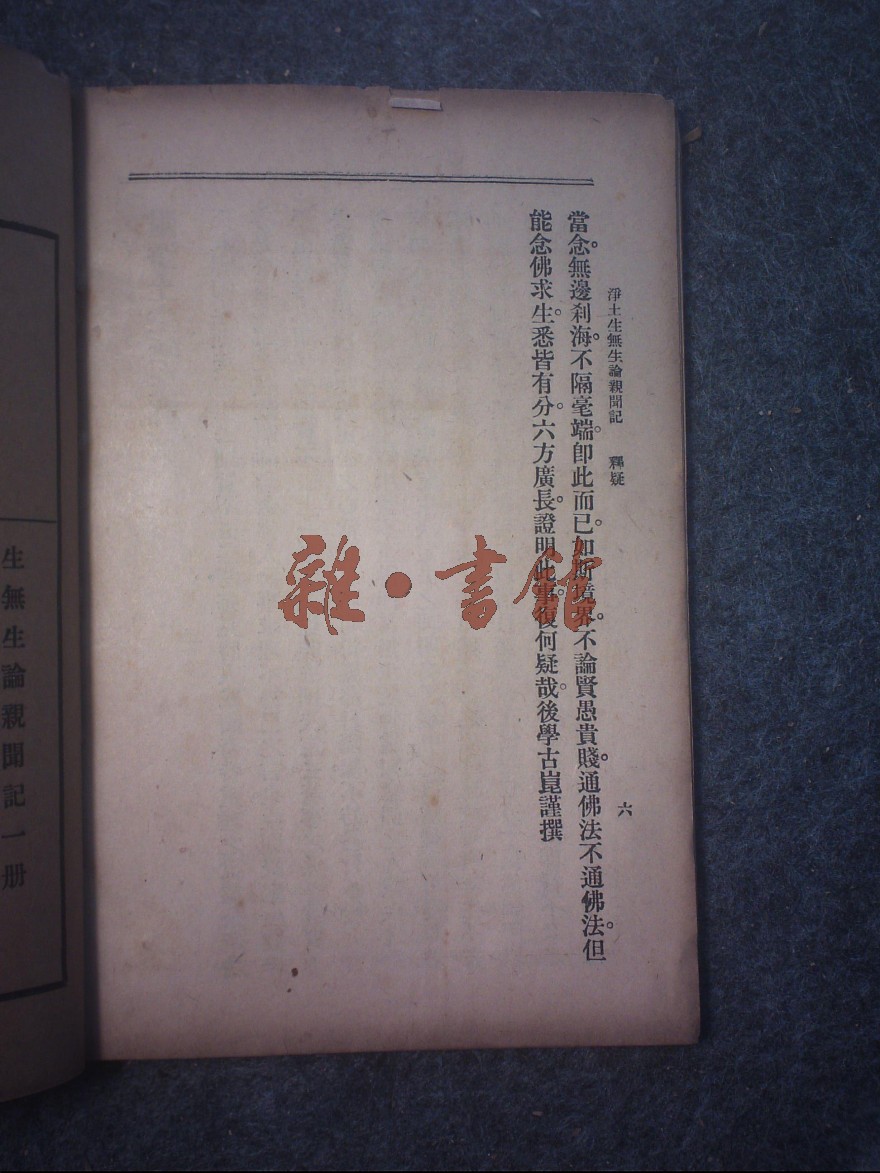 淨土生無生論親聞記 釋疑 六
當念。無邊刹海。不隔毫端。卽此而已。如斯境界。不論賢愚貴賤。通佛法不通佛法。但
能念佛求生。悉皆有分。六方廣長。證明此事。復何疑哉。後學古崑謹撰
雜·書館
生無生論親聞記一册